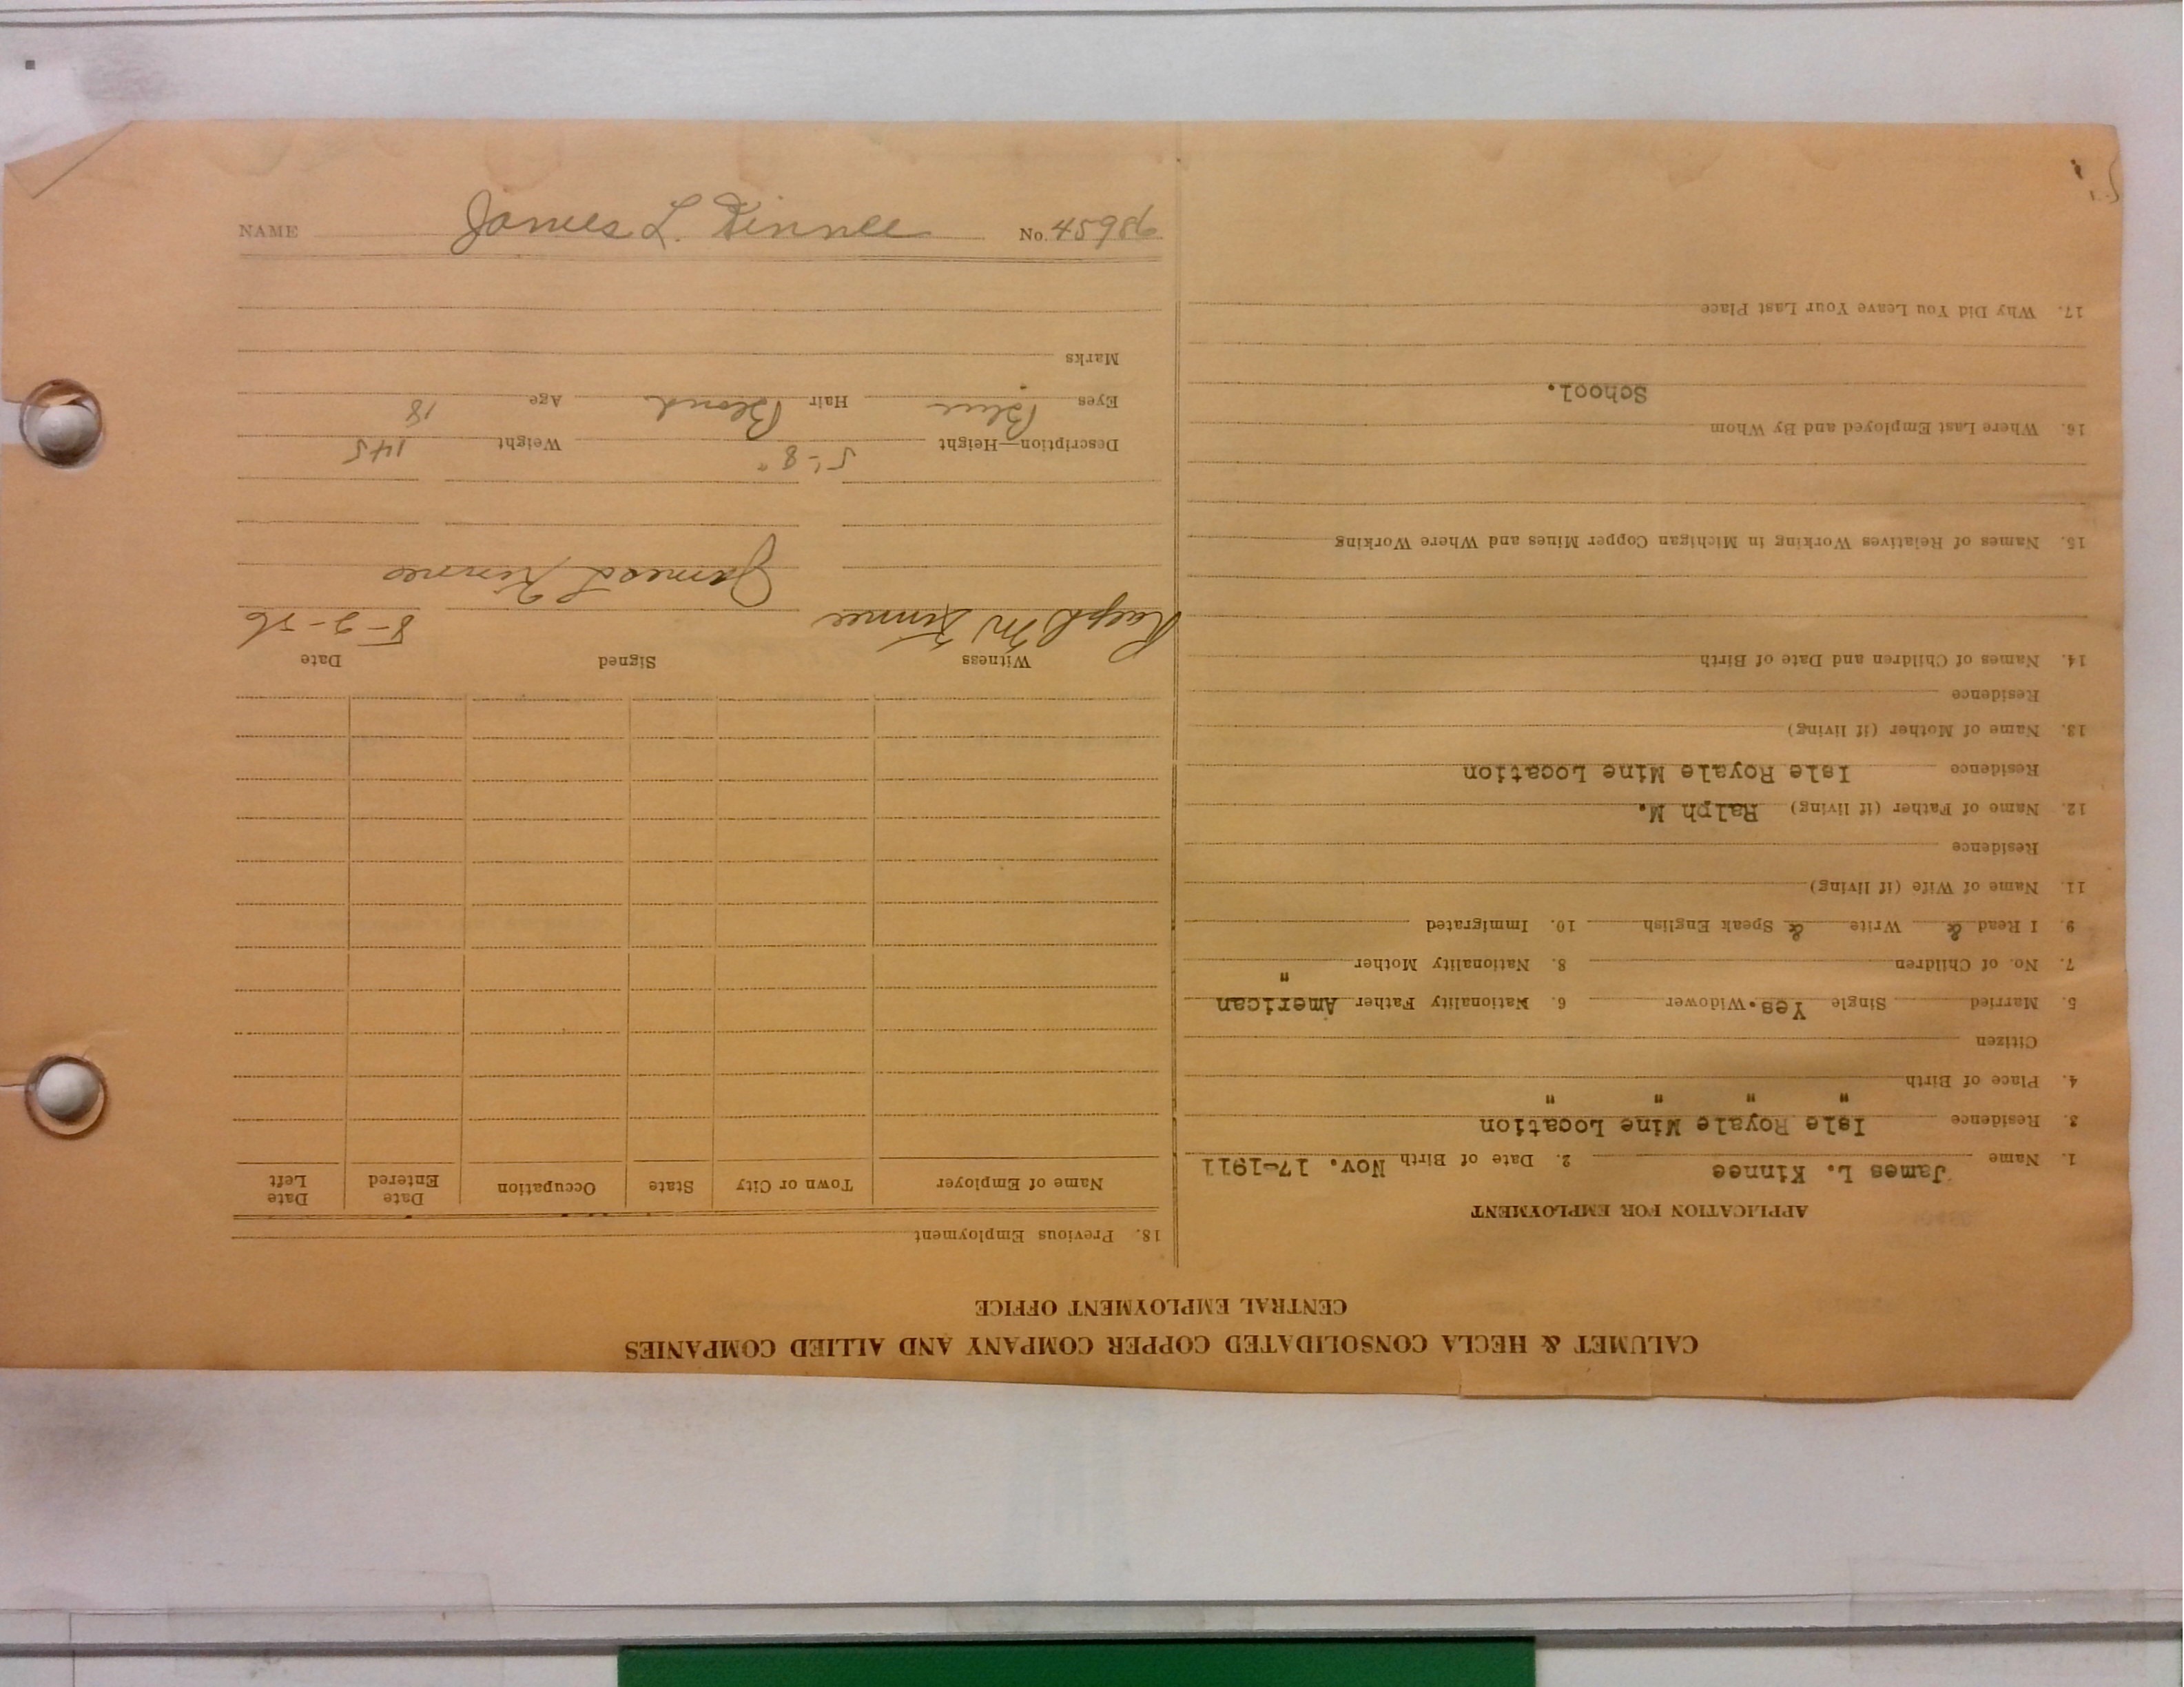 CALUMET & HECLA CONSOLIDATED COPPER COMPANY AND ALLIED COMPANIES
CENTRAL EMPLOYMENT OFFICE
APPLICATION FOR EMPLOYMENT
1. Name James L. Kinnee 2. Date of Birth Nov. 17-1911
3. Residence Isle Royale Mine Location
4. Place of Birth " " " "
Citizen
5. Married Single Yes. Widower 6. Nationality Father American
7. No. of Children 8. Nationality Mother "
9. I Read & Write & Speak English 10. Immigrated
11. Name of Wife (if living)
Residence
12. Name of Father (if living) Ralph M.
Residence Isle Royale Mine Location
13. Name of Mother (if living)
Residence
14. Names of Children and Date of Birth
15. Names of Relatives Working in Michigan Copper Mines and Where Working
16. Where Last Employed and By Whom
School.
17. Why Did You Leave Your Last Place
18. Previous Employment
Name of Employer Town or City State Occupation Date Entered Date Left
Witness Signed Date
Ralph M Kinnee James L Kinnee
Description—Height 5'-8" Weight 145
Eyes Blue Hair Blond Age 18
Marks
NAME James L. Kinnee No. 45986